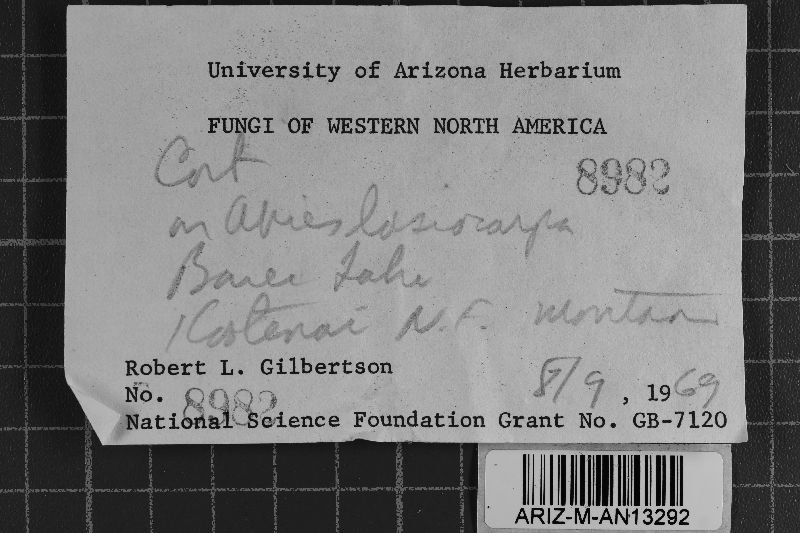 University of Arizona Herbarium
FUNGI OF WESTERN NORTH AMERICA
Cort
8982
on Abies lasiocarpa
Baree Lake
Kootenai N.F. Montana
Robert L. Gilbertson
8/9, 1969
No. 8982
National Science Foundation Grant No. GB-7120
ARIZ-M-AN13292